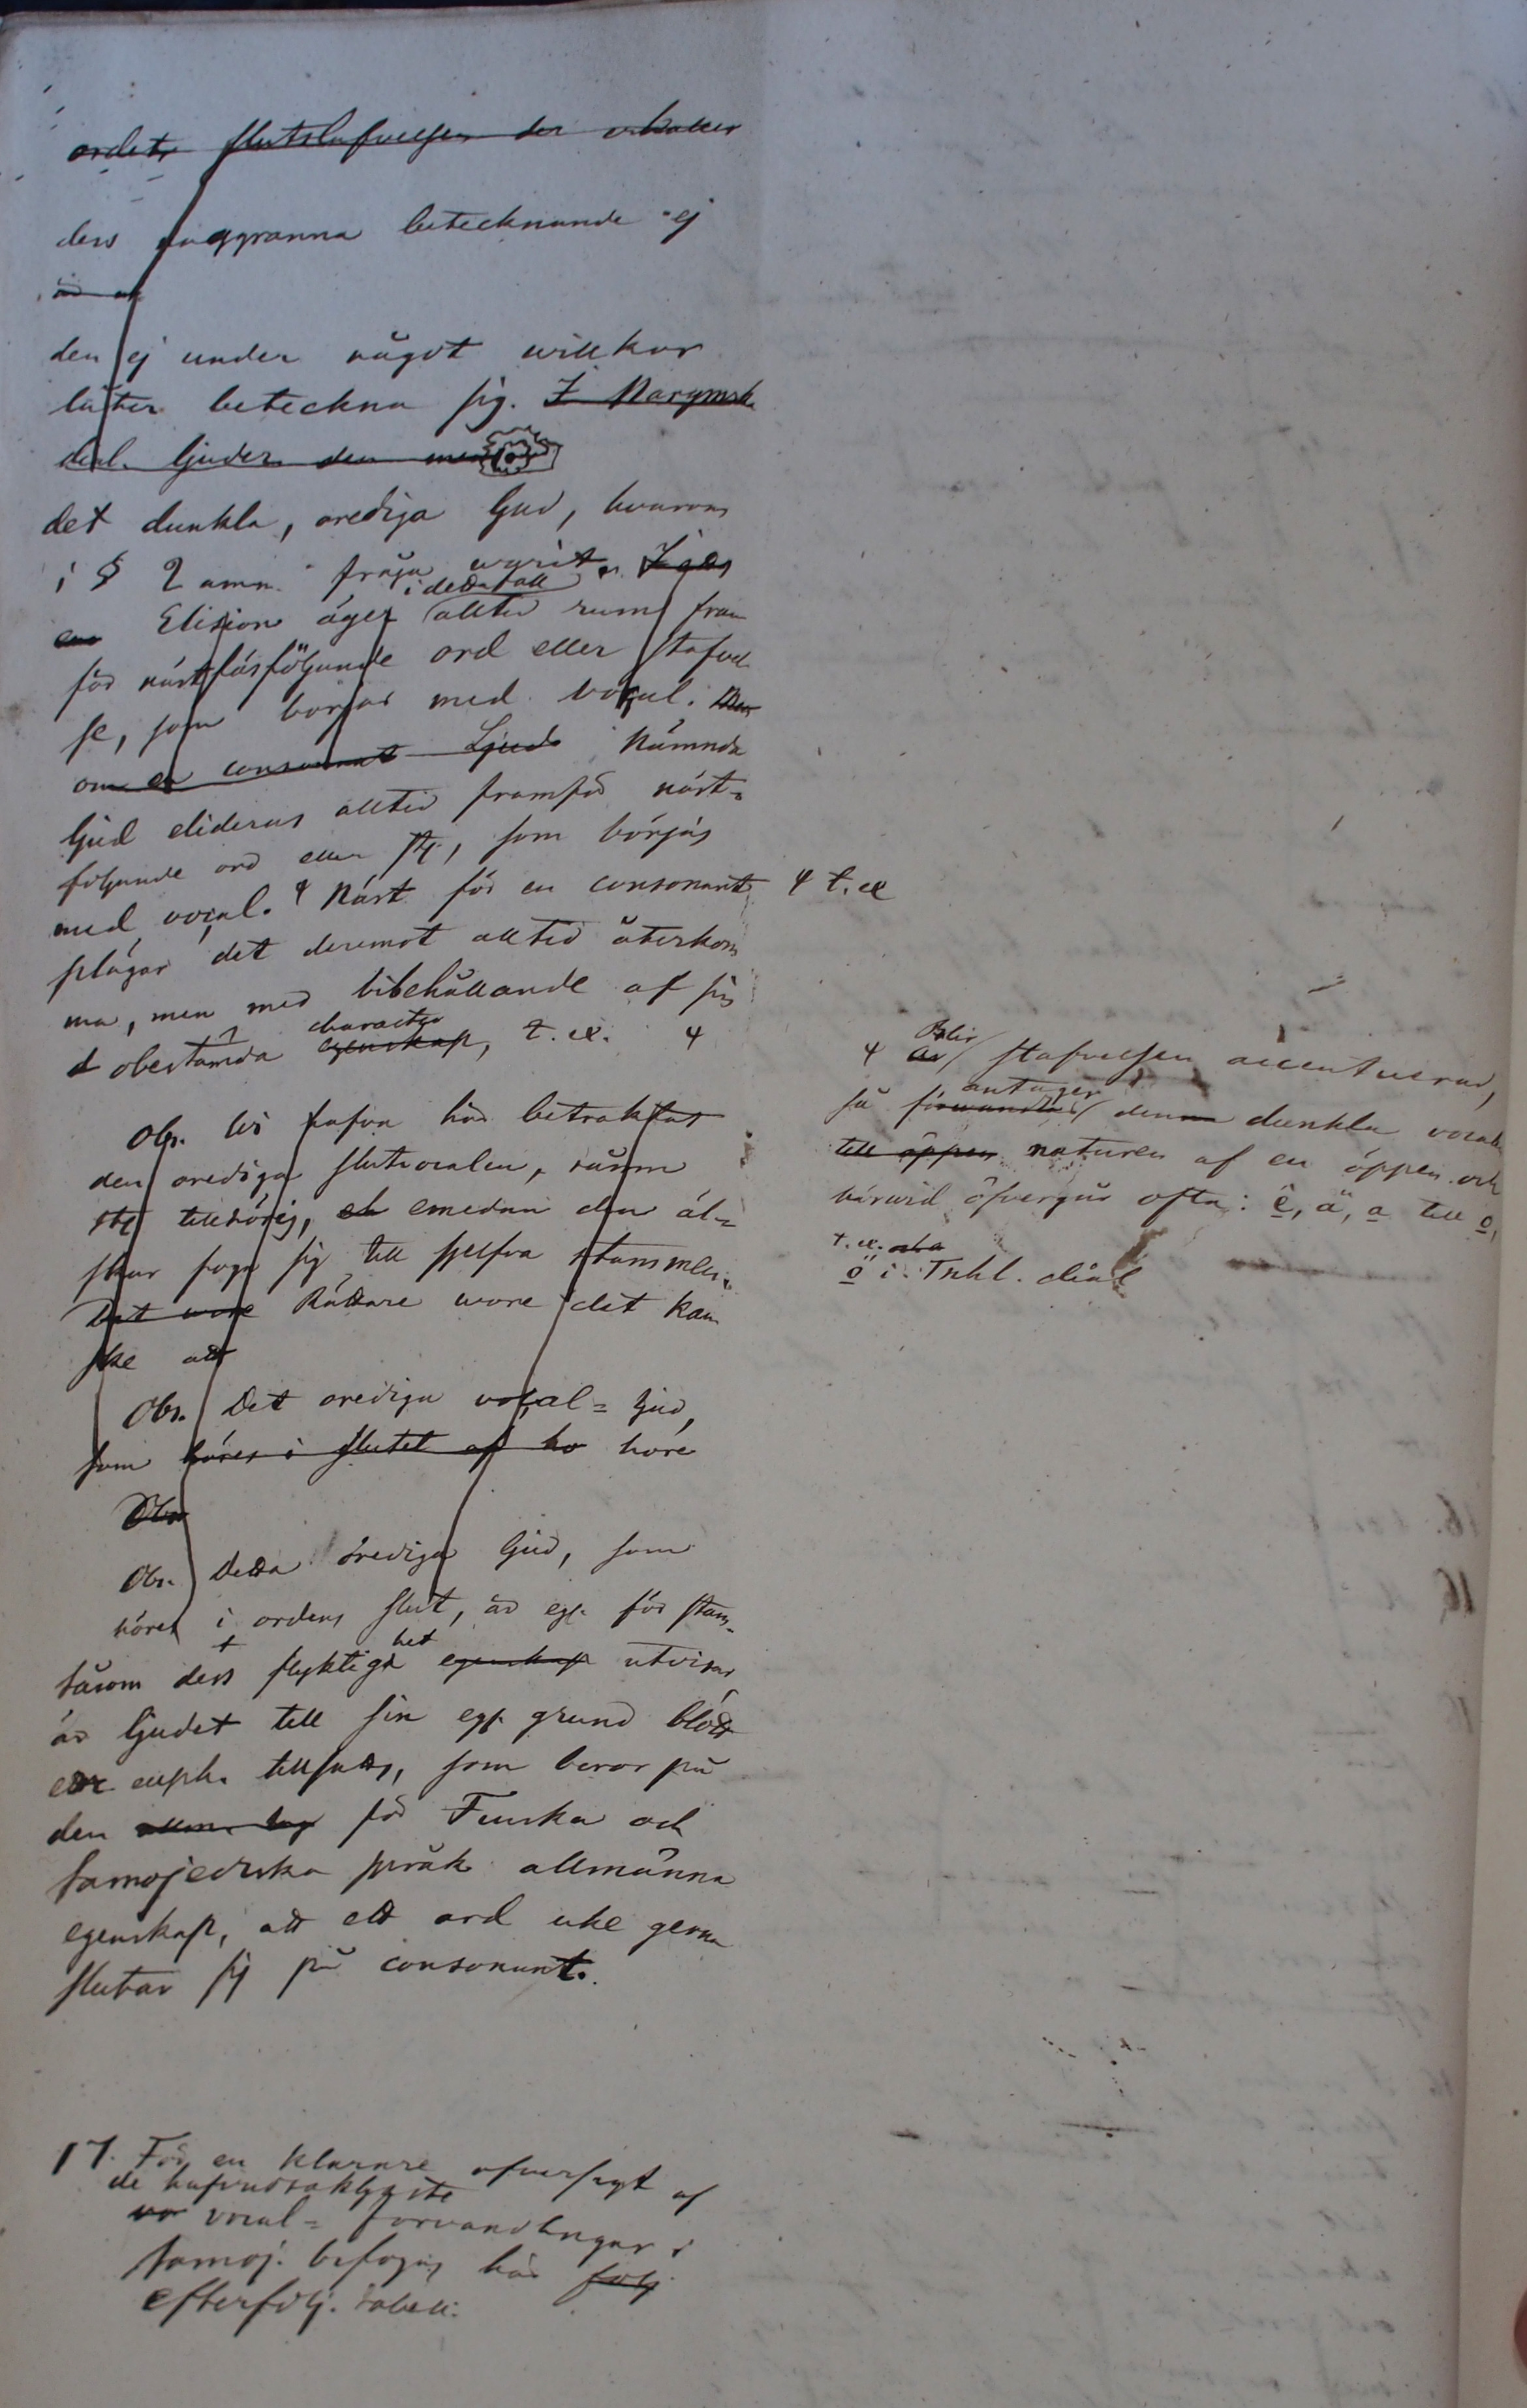 ordets slutstafvelsen der vokalen
dess noggranna betecknande ej
är at
den ej under något willkor
låter beteckna sig. I Narymsk
dial. ljuder den men
det dunkla, orediga ljud, hvarom
i § 2 anm. fråga warit.
i detta fall
en Elision äger alltid rum fram
för näst påföljande ord eller stafvel
se, som börjar med vocal. Men
om en consonant Ljud Nämnda
ljud elideras alltid framför näst-
följande ord eller st., som börjas
med vocal. Näst för en consonant
plägar det deremot alltid återkom
ma, men med bibehållande af sin
character
obestämda egenskap, t. ex.
Obs. Wi hafva här betraktat
den orediga slutvocalen, såsom
tillhörig, emedan den äl-
skar foga sig till sjelfva stammen.
Det wore Rättare wore det kan
ske att
Obs. Det orediga vocal= ljud,
som höres i slutet af ho höre
Obs
Obs. Detta orediga ljud, som
höres i ordens slut, är eg. för stam-
het
såsom dess flyktiga egenskap utvisar
är ljudet till sin eg. grund blott
ett euph. tillsats, som beror på
den allm. lag för Finska och
Samojediska språk allmänna
egenskap, att ett ord icke gerna
slutar sig på consonant.
17. För en klarare öfversigt af
de hufvudsakligaste
vo vocal= förvandlingar i
Samoj. bifogas här följ
efterfölj. tabell.
t. ex
Blir
stafvelsen accentuerad,
antager
så förvandlas den dunkla vocalen
till öppen naturen af en öppen och
härvid öfvergår ofta: e, ä, a till o,
t. ex.
ö i Tschl. dial